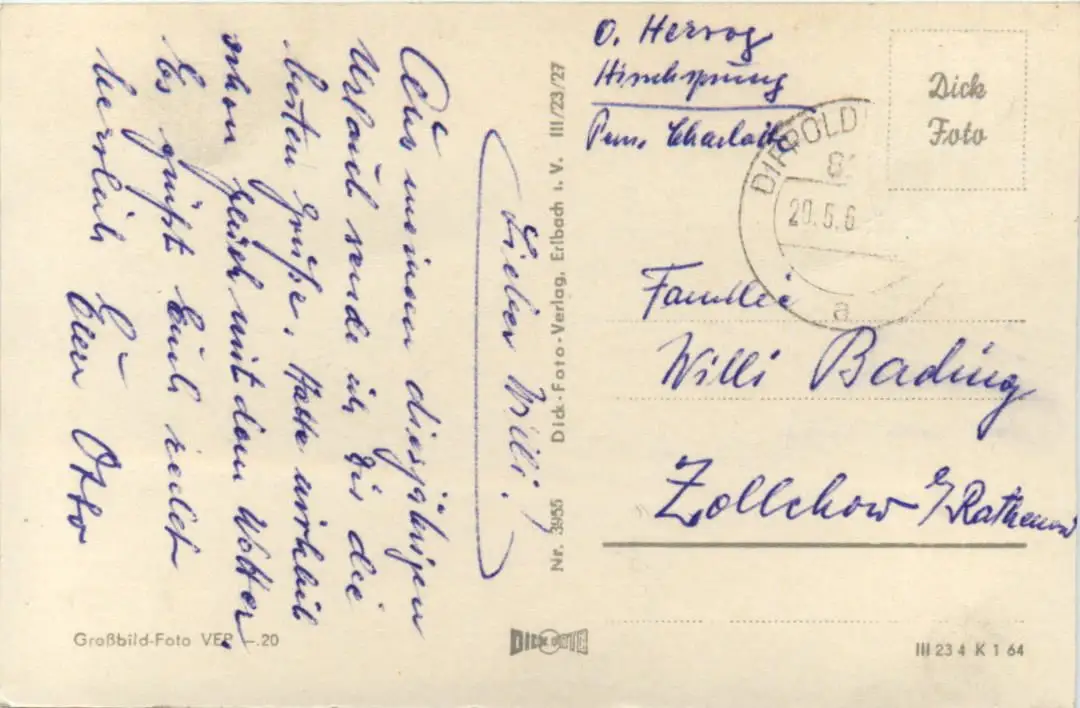 Lieber Willi!
Aus meinem diesjährigen
Urlaub sende ich Dir die
besten Grüße. Hatte wirklich
schon Pech mit dem Wetter.
Es grüßt Euch recht
herzlich Euer Otto
Nr. 3955 Dick-Foto-Verlag, Erlbach i. V. III/23/27
O. Herzog
Hirschsprung
Pens. Charlotte
Dick
Foto
DIPPOLD
20.5.6
a
Familie
Willi Bading
Zollchow b/Rathenow
Großbild-Foto VEP -.20
DICK FOTO
III 23 4 K 1 64